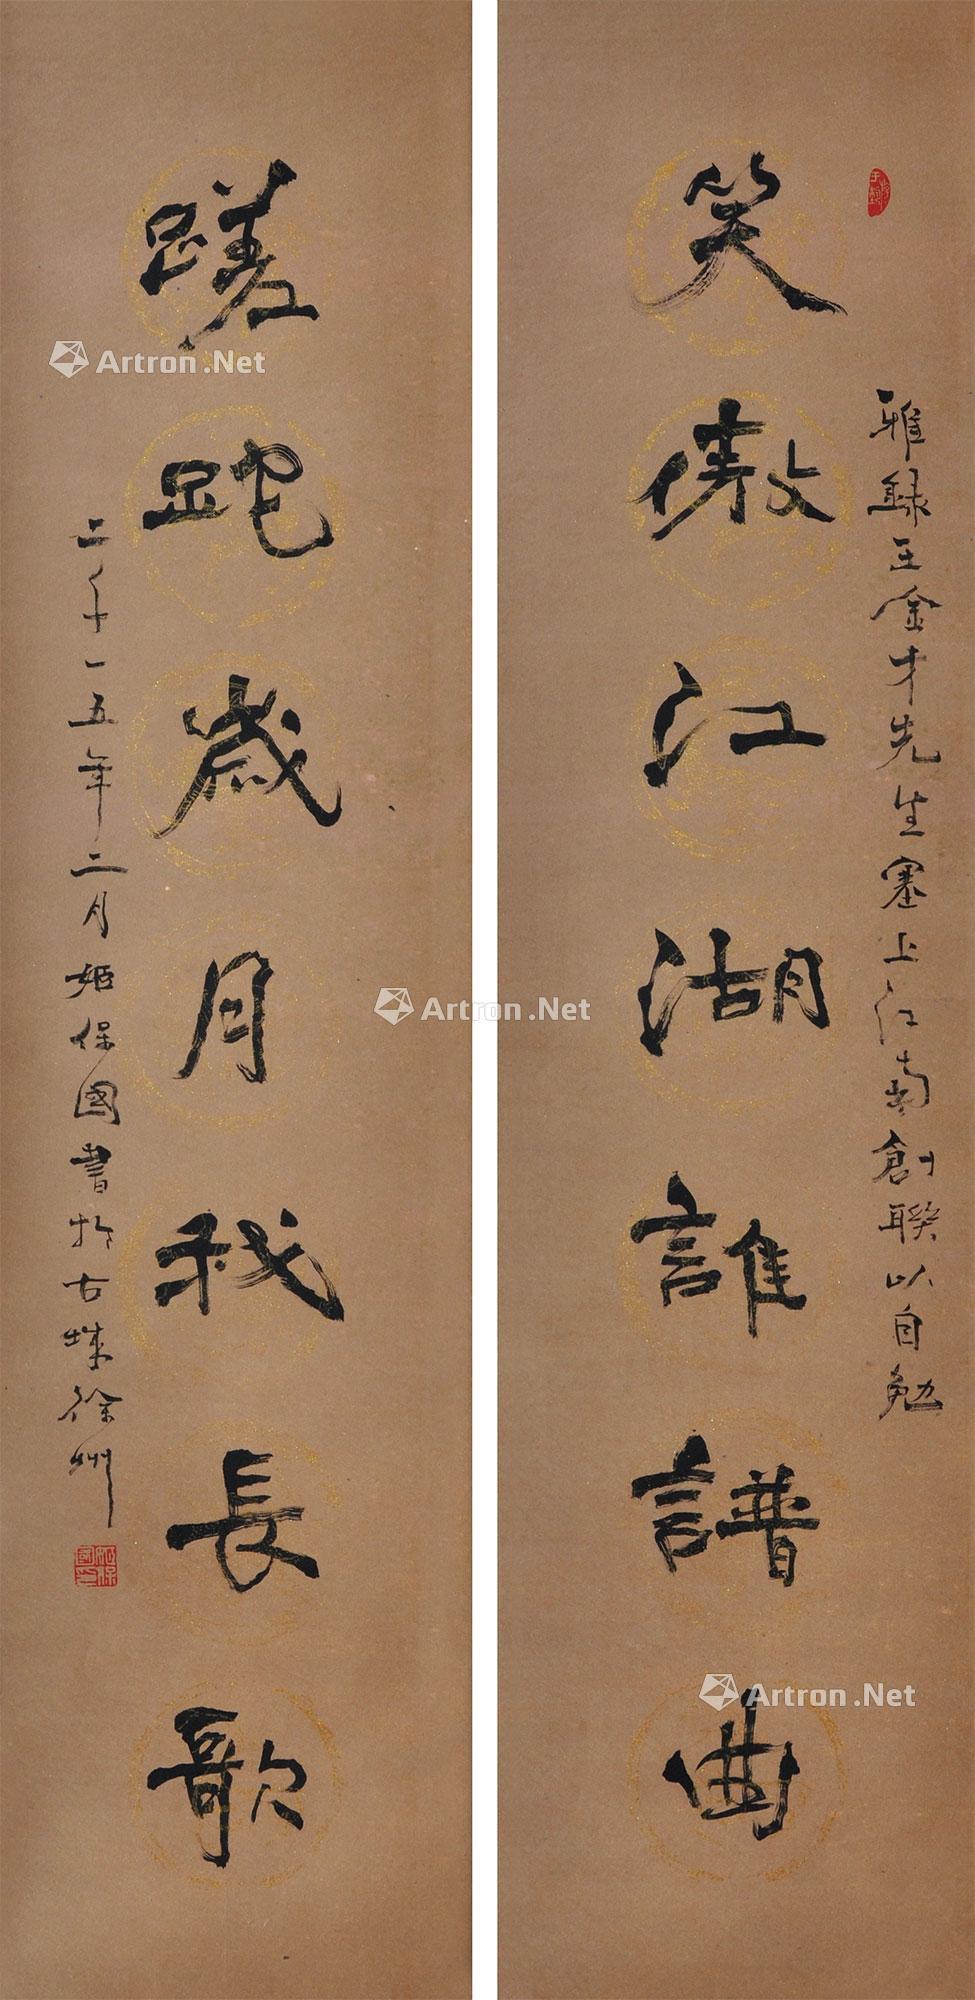 笑傲江湖誰譜曲
雅録王金才先生塞上江南創聯以自勉
蹉跎歲月我長歌
二千一五年二月姬保國書於古城徐州
Artron.Net
Artron.Net
Artron.Net